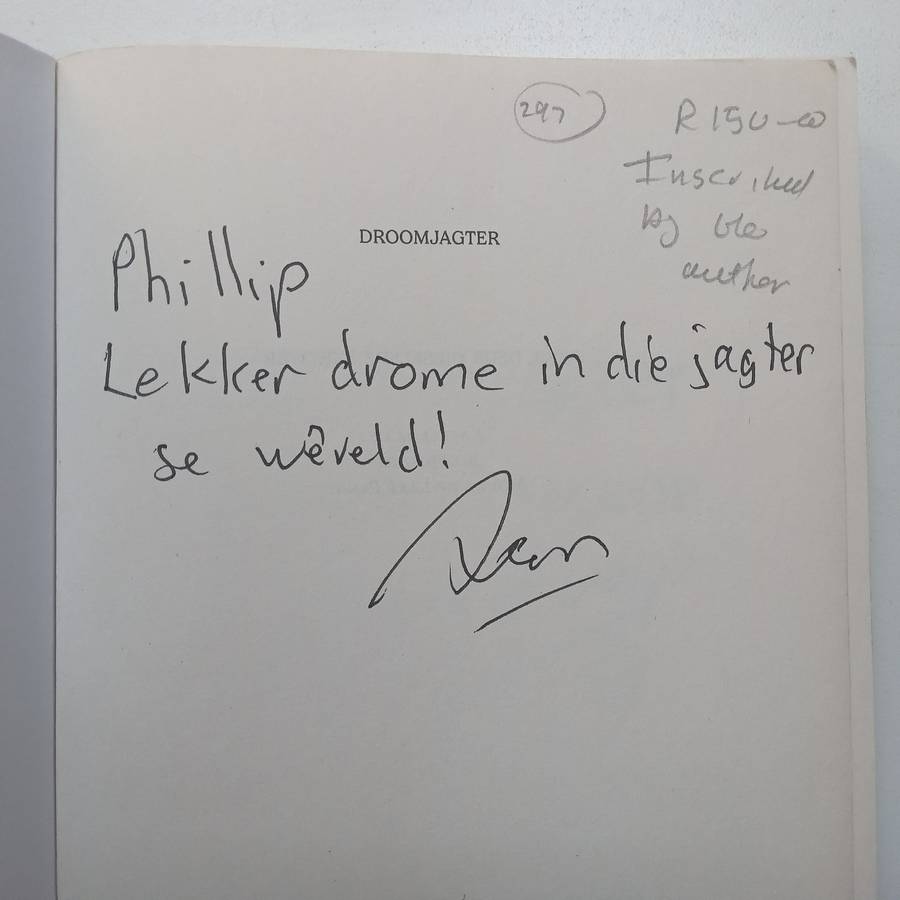 297
R150-00
Inscribed
by the
author
DROOMJAGTER
Phillip
Lekker drome in die jagter
se wêreld!